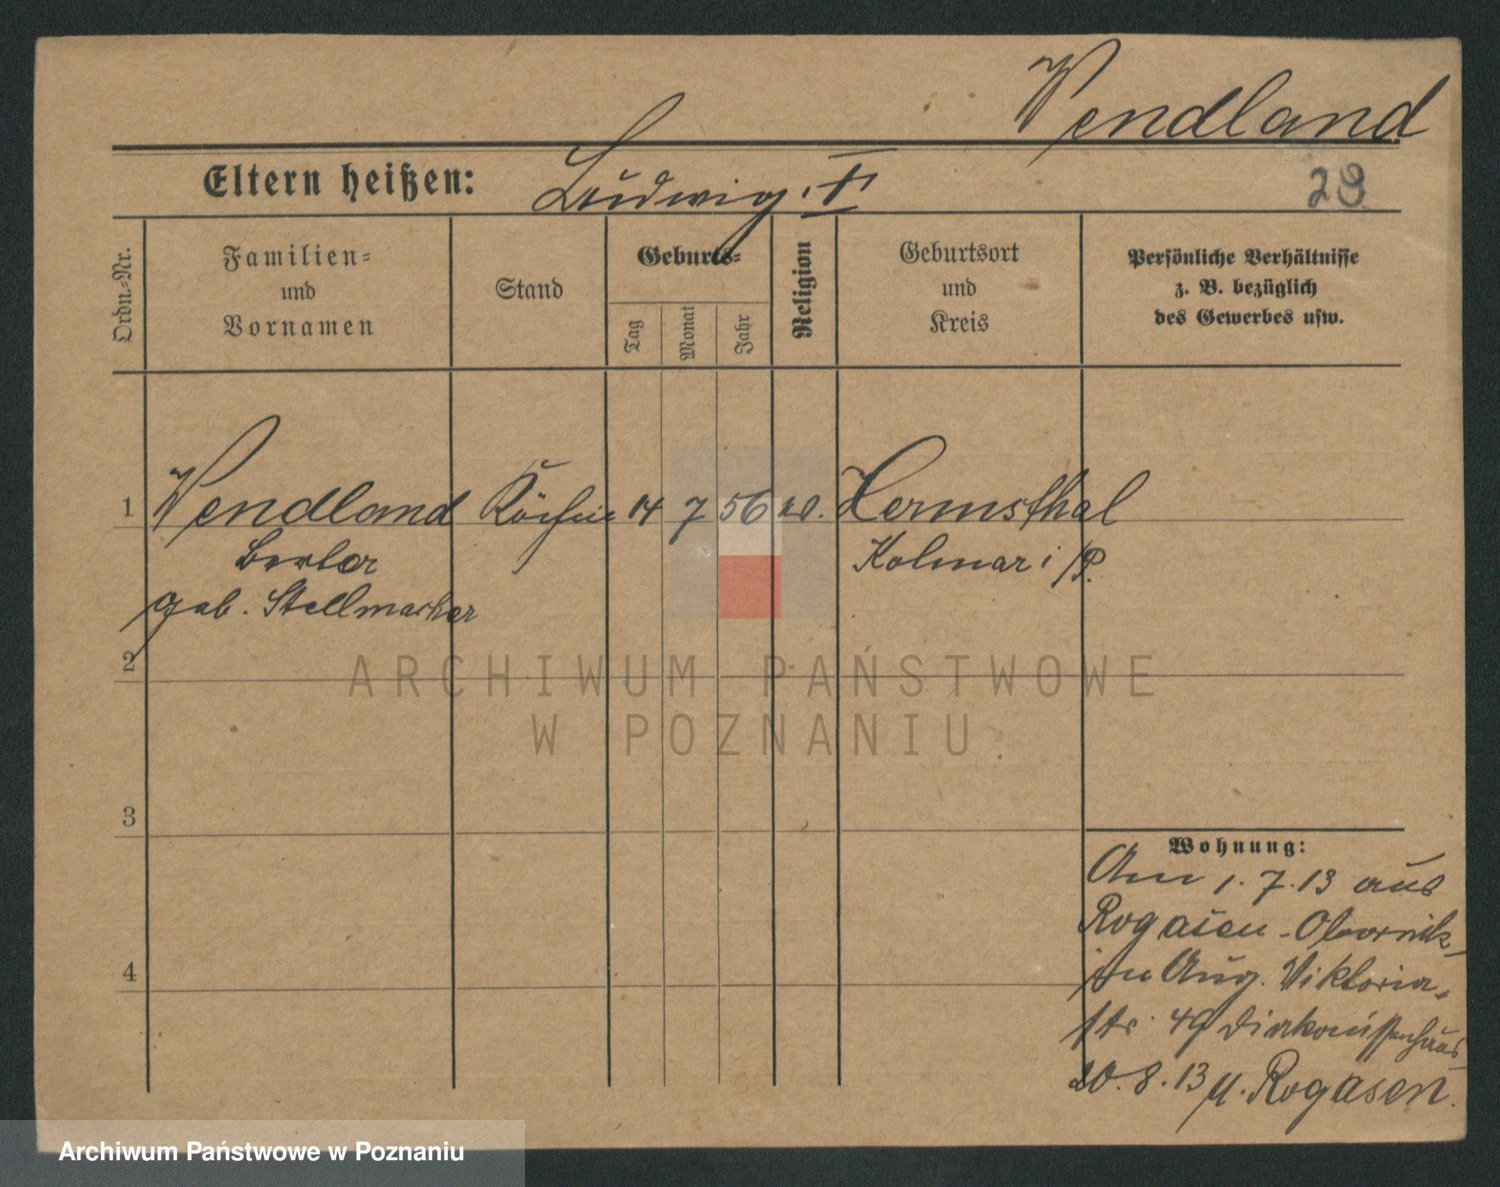 Wendland
Eltern heißen: Ludwig. †.
29
Ordn.-Nr.
Familien-
und
Vornamen
Stand
Geburts-
Tag
Monat
Jahr
Religion
Geburtsort
und
Kreis
Persönliche Verhältnisse
z. B. bezüglich
des Gewerbes usw.
1 Wendland Köchin 14 7 56 ev. Hermsthal
Berta Kolmar i/P.
geb. Stellmacher
2
ARCHIWUM PAŃSTWOWE
W POZNANIU
3
Wohnung:
Am 1. 7. 13 aus
Rogasen-Obornik
in Aug. Viktoria-
str. 49 Diakonissenhaus
20. 8. 13 n. Rogasen.
4
Archiwum Państwowe w Poznaniu